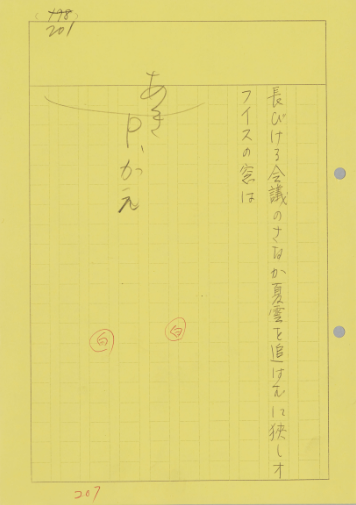 (198)
201
長びける会議のさなか夏雲を追はむに狭しオ
フイスの窓は
あき
P.かえ
白
白
207